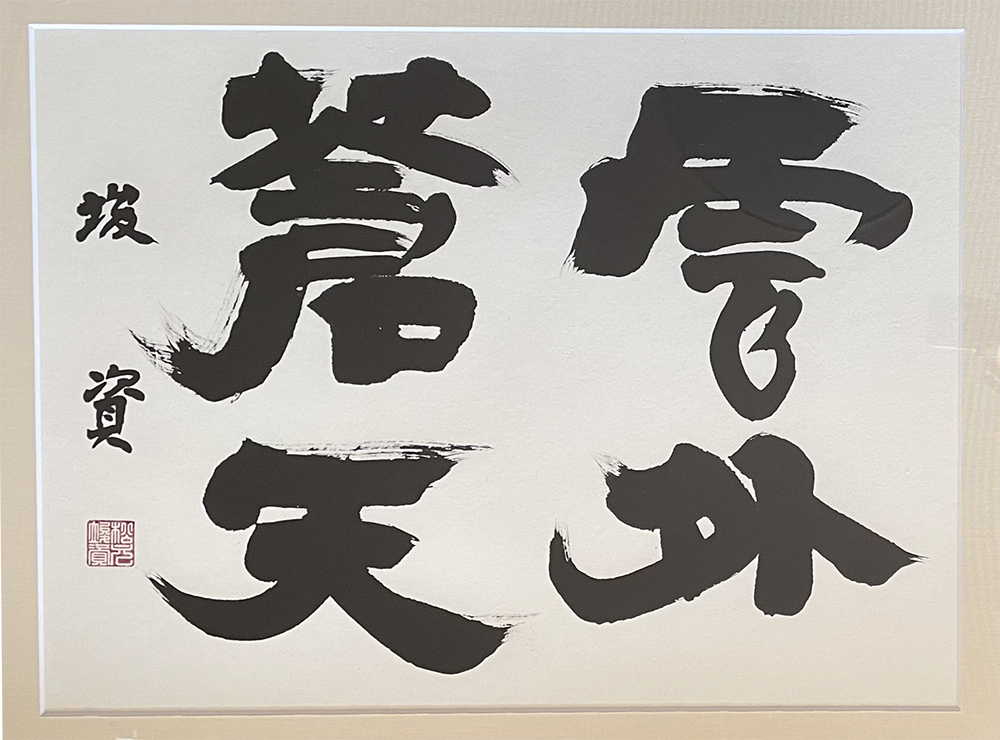 雲外
蒼天
埈資